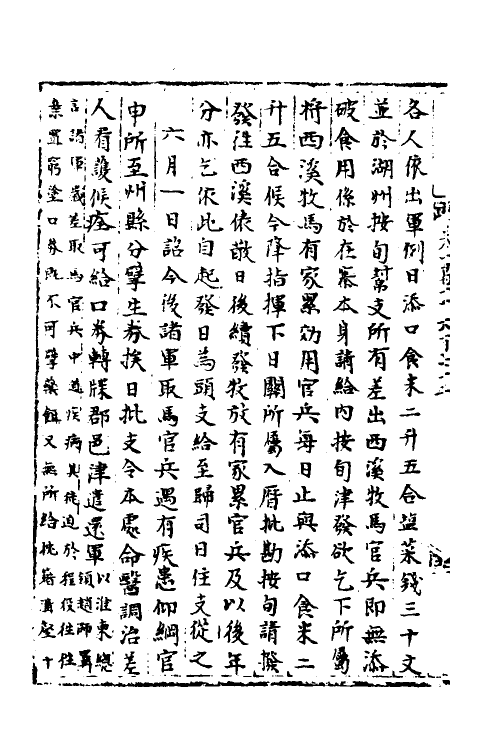 各人依出軍例日添口食米二升五合鹽菜錢三十文
並於湖州按旬幫支所有差出西溪牧馬官兵即無添
破食用係於在寨本身請給內按旬津發欲乞下所屬
將西溪牧馬有家累効用官兵每日止與添口食米二
升五合候今降指揮下日關所屬入曆批勘按旬請撥
發往西溪依敬日後續發牧放有家累官兵及以後年
分亦乞依此自起發日為頭支給至歸司日住支從之
六月一日詔今後諸軍取馬官兵遇有疾患仰綱官
申所至州縣分擘生券挨日批支令本處命醫調治差
人看護候痊可給口券轉牒郡邑津遣還軍以淮東總領趙師羃
言諸軍歲差取馬官兵中道疾病其徒迫於程役往往
棄置窮塗口券既不可擘藥餌又無所給扶藉溝壑十